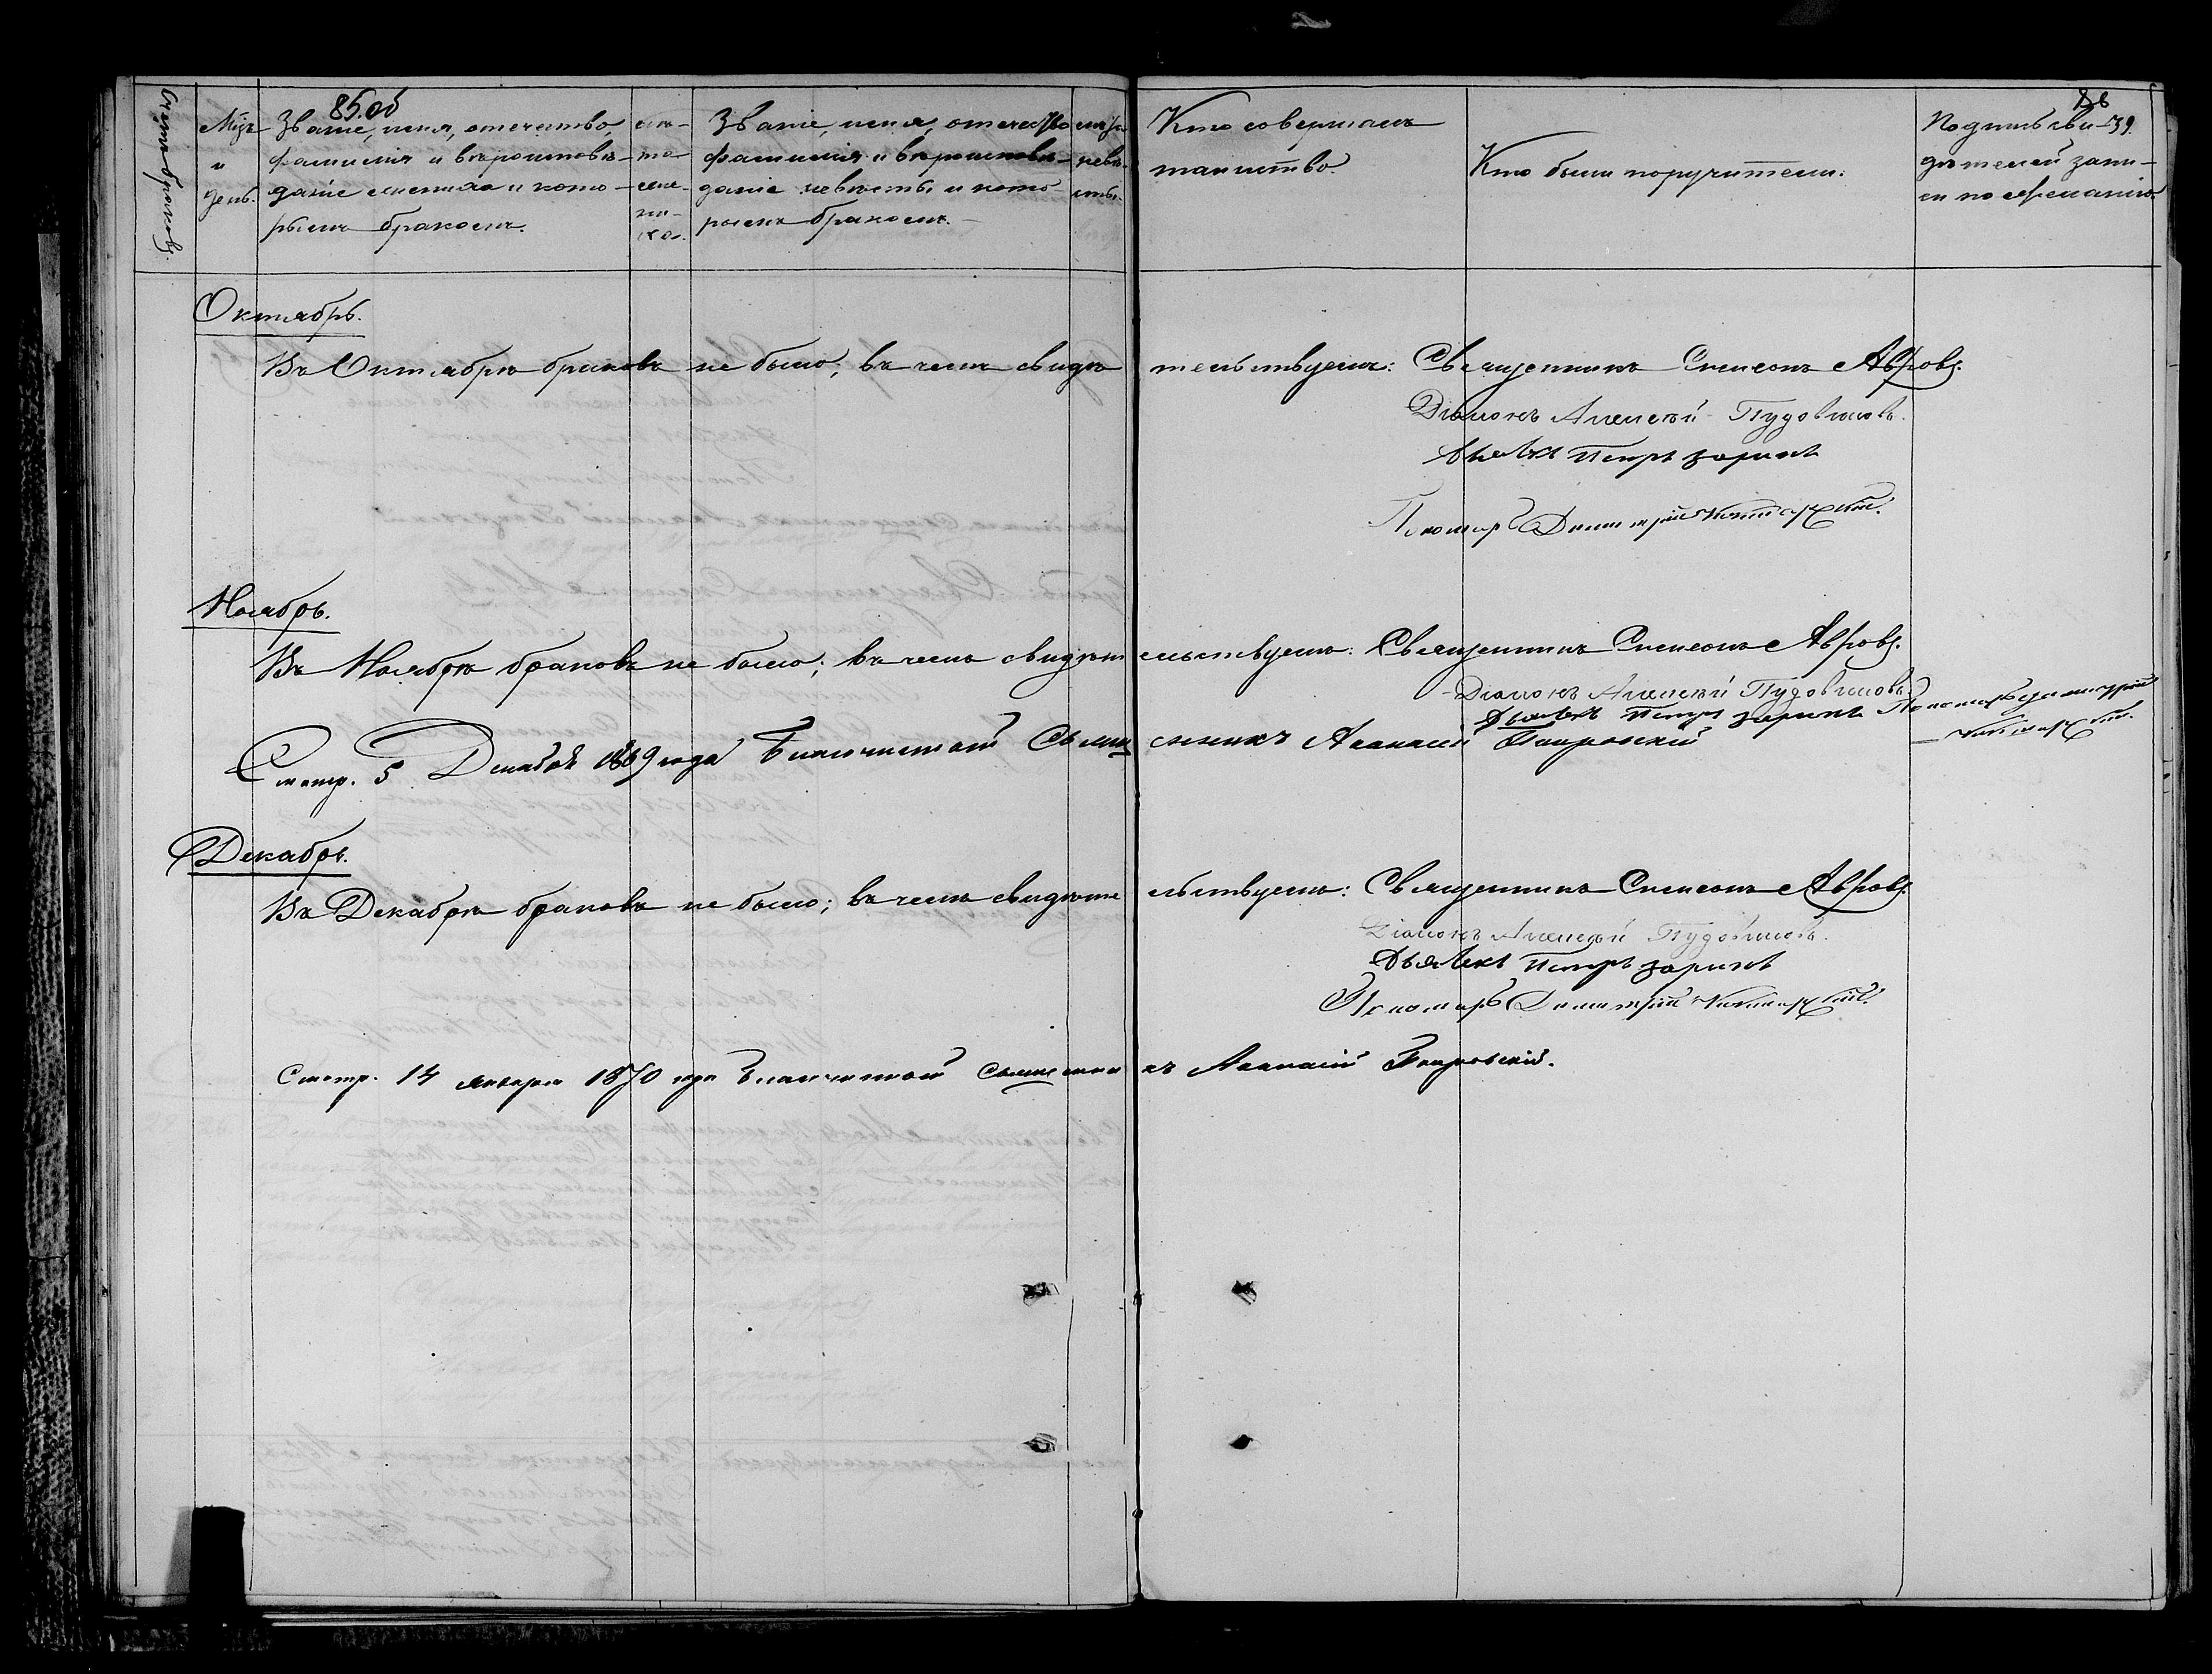 85.об
86
39.
Счетъ браковъ.
Мѣс.
и
день.
Званіе, имя, отчество,
фамилія и вѣроисповѣ-
даніе жениха и кото-
рымъ бракомъ.
лѣ-
та
жени-
ха.
Званіе, имя, отчество
фамилія и вѣроисповѣ-
даніе невѣсты и кото-
рымъ бракомъ.
невѣ-
сты.
Кто совершалъ
таинство.
Кто были поручители.
Подпись сви-
дѣтелей запи-
си по желанію.
Октябрь.
Въ Октябрѣ браковъ не было; въ чемъ свидѣтельствуемъ: Священникъ Симеонъ Авровъ.
Діаконъ Алексѣй Пудовиковъ.
Дьячекъ Петръ Зоринъ
Пономарь Димитрій
Ноябрь.
Въ Ноябрѣ браковъ не было; въ чемъ свидѣтельствуемъ: Священникъ Симеонъ Авровъ.
Діаконъ Алексѣй Пудовиковъ.
Дьячекъ Петръ Зоринъ Пономарь Димитрій
Смотр. 5 Декабря 1869 года Благочинный Священникъ Аѳанасій
Декабрь.
Въ Декабрѣ браковъ не было; въ чемъ свидѣтельствуемъ: Священникъ Симеонъ Авровъ.
Діаконъ Алексѣй Пудовиковъ.
Дьячекъ Петръ Зоринъ
Пономарь Димитрій
Смотр. 14 Января 1870 года Благочинный Священникъ Аѳанасій